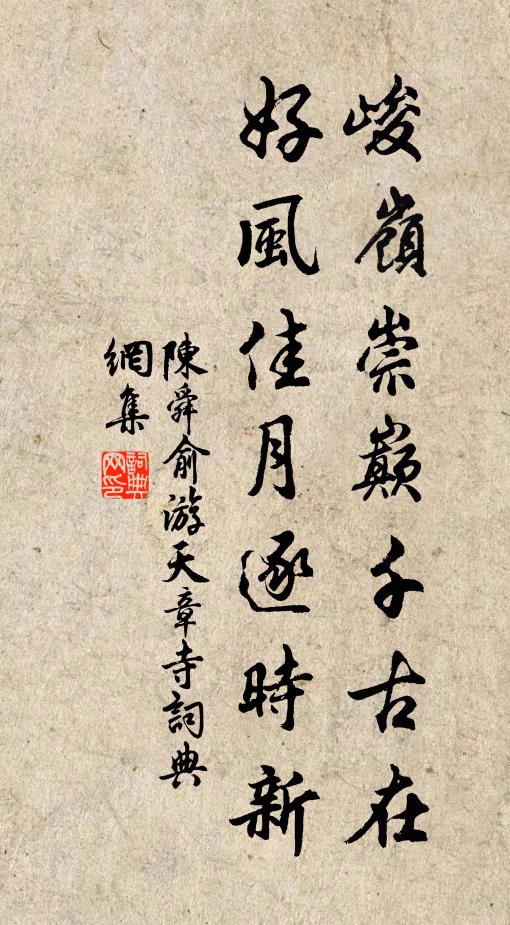 峻嶺崇巔千古在
好風佳月逐時新
陳舜俞游天章寺詞典
網集
詞典
网印